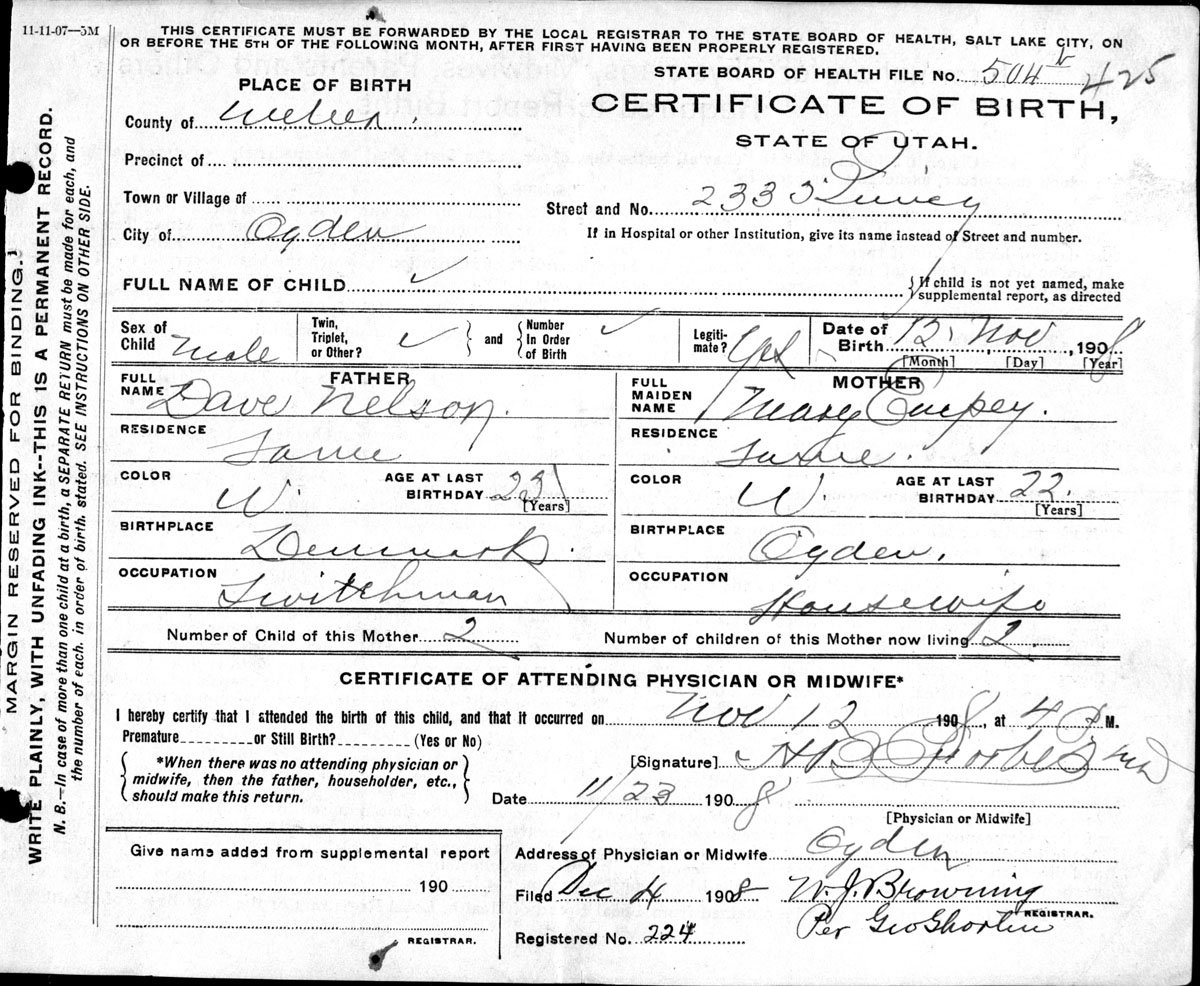 11-11-07—5M
THIS CERTIFICATE MUST BE FORWARDED BY THE LOCAL REGISTRAR TO THE STATE BOARD OF HEALTH, SALT LAKE CITY, ON
OR BEFORE THE 5TH OF THE FOLLOWING MONTH, AFTER FIRST HAVING BEEN PROPERLY REGISTERED.
STATE BOARD OF HEALTH FILE No. 504 425
PLACE OF BIRTH
CERTIFICATE OF BIRTH,
STATE OF UTAH.
County of Weber.
Precinct of
Town or Village of
Street and No. 233
City of Ogden
If in Hospital or other Institution, give its name instead of Street and number.
FULL NAME OF CHILD ✓
{If child is not yet named, make
supplemental report, as directed
Sex of Child Male
Twin, Triplet, or Other? ✓ } and { Number In Order of Birth ✓
Legiti-mate? Yes
Date of Birth 12. Nov, 1908
[Month] [Day] [Year]
FATHER
FULL NAME Dave Nelson.
MOTHER
FULL MAIDEN NAME Mary
RESIDENCE Same
RESIDENCE Same.
COLOR W.
AGE AT LAST BIRTHDAY 23
[Years]
COLOR W.
AGE AT LAST BIRTHDAY 22.
[Years]
BIRTHPLACE Denmark.
BIRTHPLACE Ogden.
OCCUPATION Switchman
OCCUPATION Housewife
Number of Child of this Mother 2
Number of children of this Mother now living 2
CERTIFICATE OF ATTENDING PHYSICIAN OR MIDWIFE*
I hereby certify that I attended the birth of this child, and that it occurred on Nov 12 1908, at 4 P M.
Premature or Still Birth? (Yes or No)
{ *When there was no attending physician or
midwife, then the father, householder, etc.,
should make this return. }
[Signature]
Date 11/23 1908
[Physician or Midwife]
Give name added from supplemental report
190
REGISTRAR.
Address of Physician or Midwife Ogden
Filed Dec 4 1908 W. J. Browning
REGISTRAR.
Per Geo
Registered No. 224
MARGIN RESERVED FOR BINDING.
WRITE PLAINLY, WITH UNFADING INK--THIS IS A PERMANENT RECORD.
N. B.—In case of more than one child at a birth, a SEPARATE RETURN must be made for each, and
the number of each, in order of birth, stated. SEE INSTRUCTIONS ON OTHER SIDE.